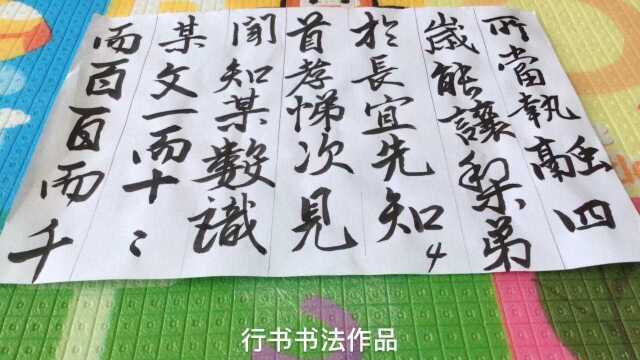 所當執融四
歲能讓梨弟
於長宜先知
4
首孝悌次見
聞知某數識
某文一而十〻
而百百而千
行书书法作品